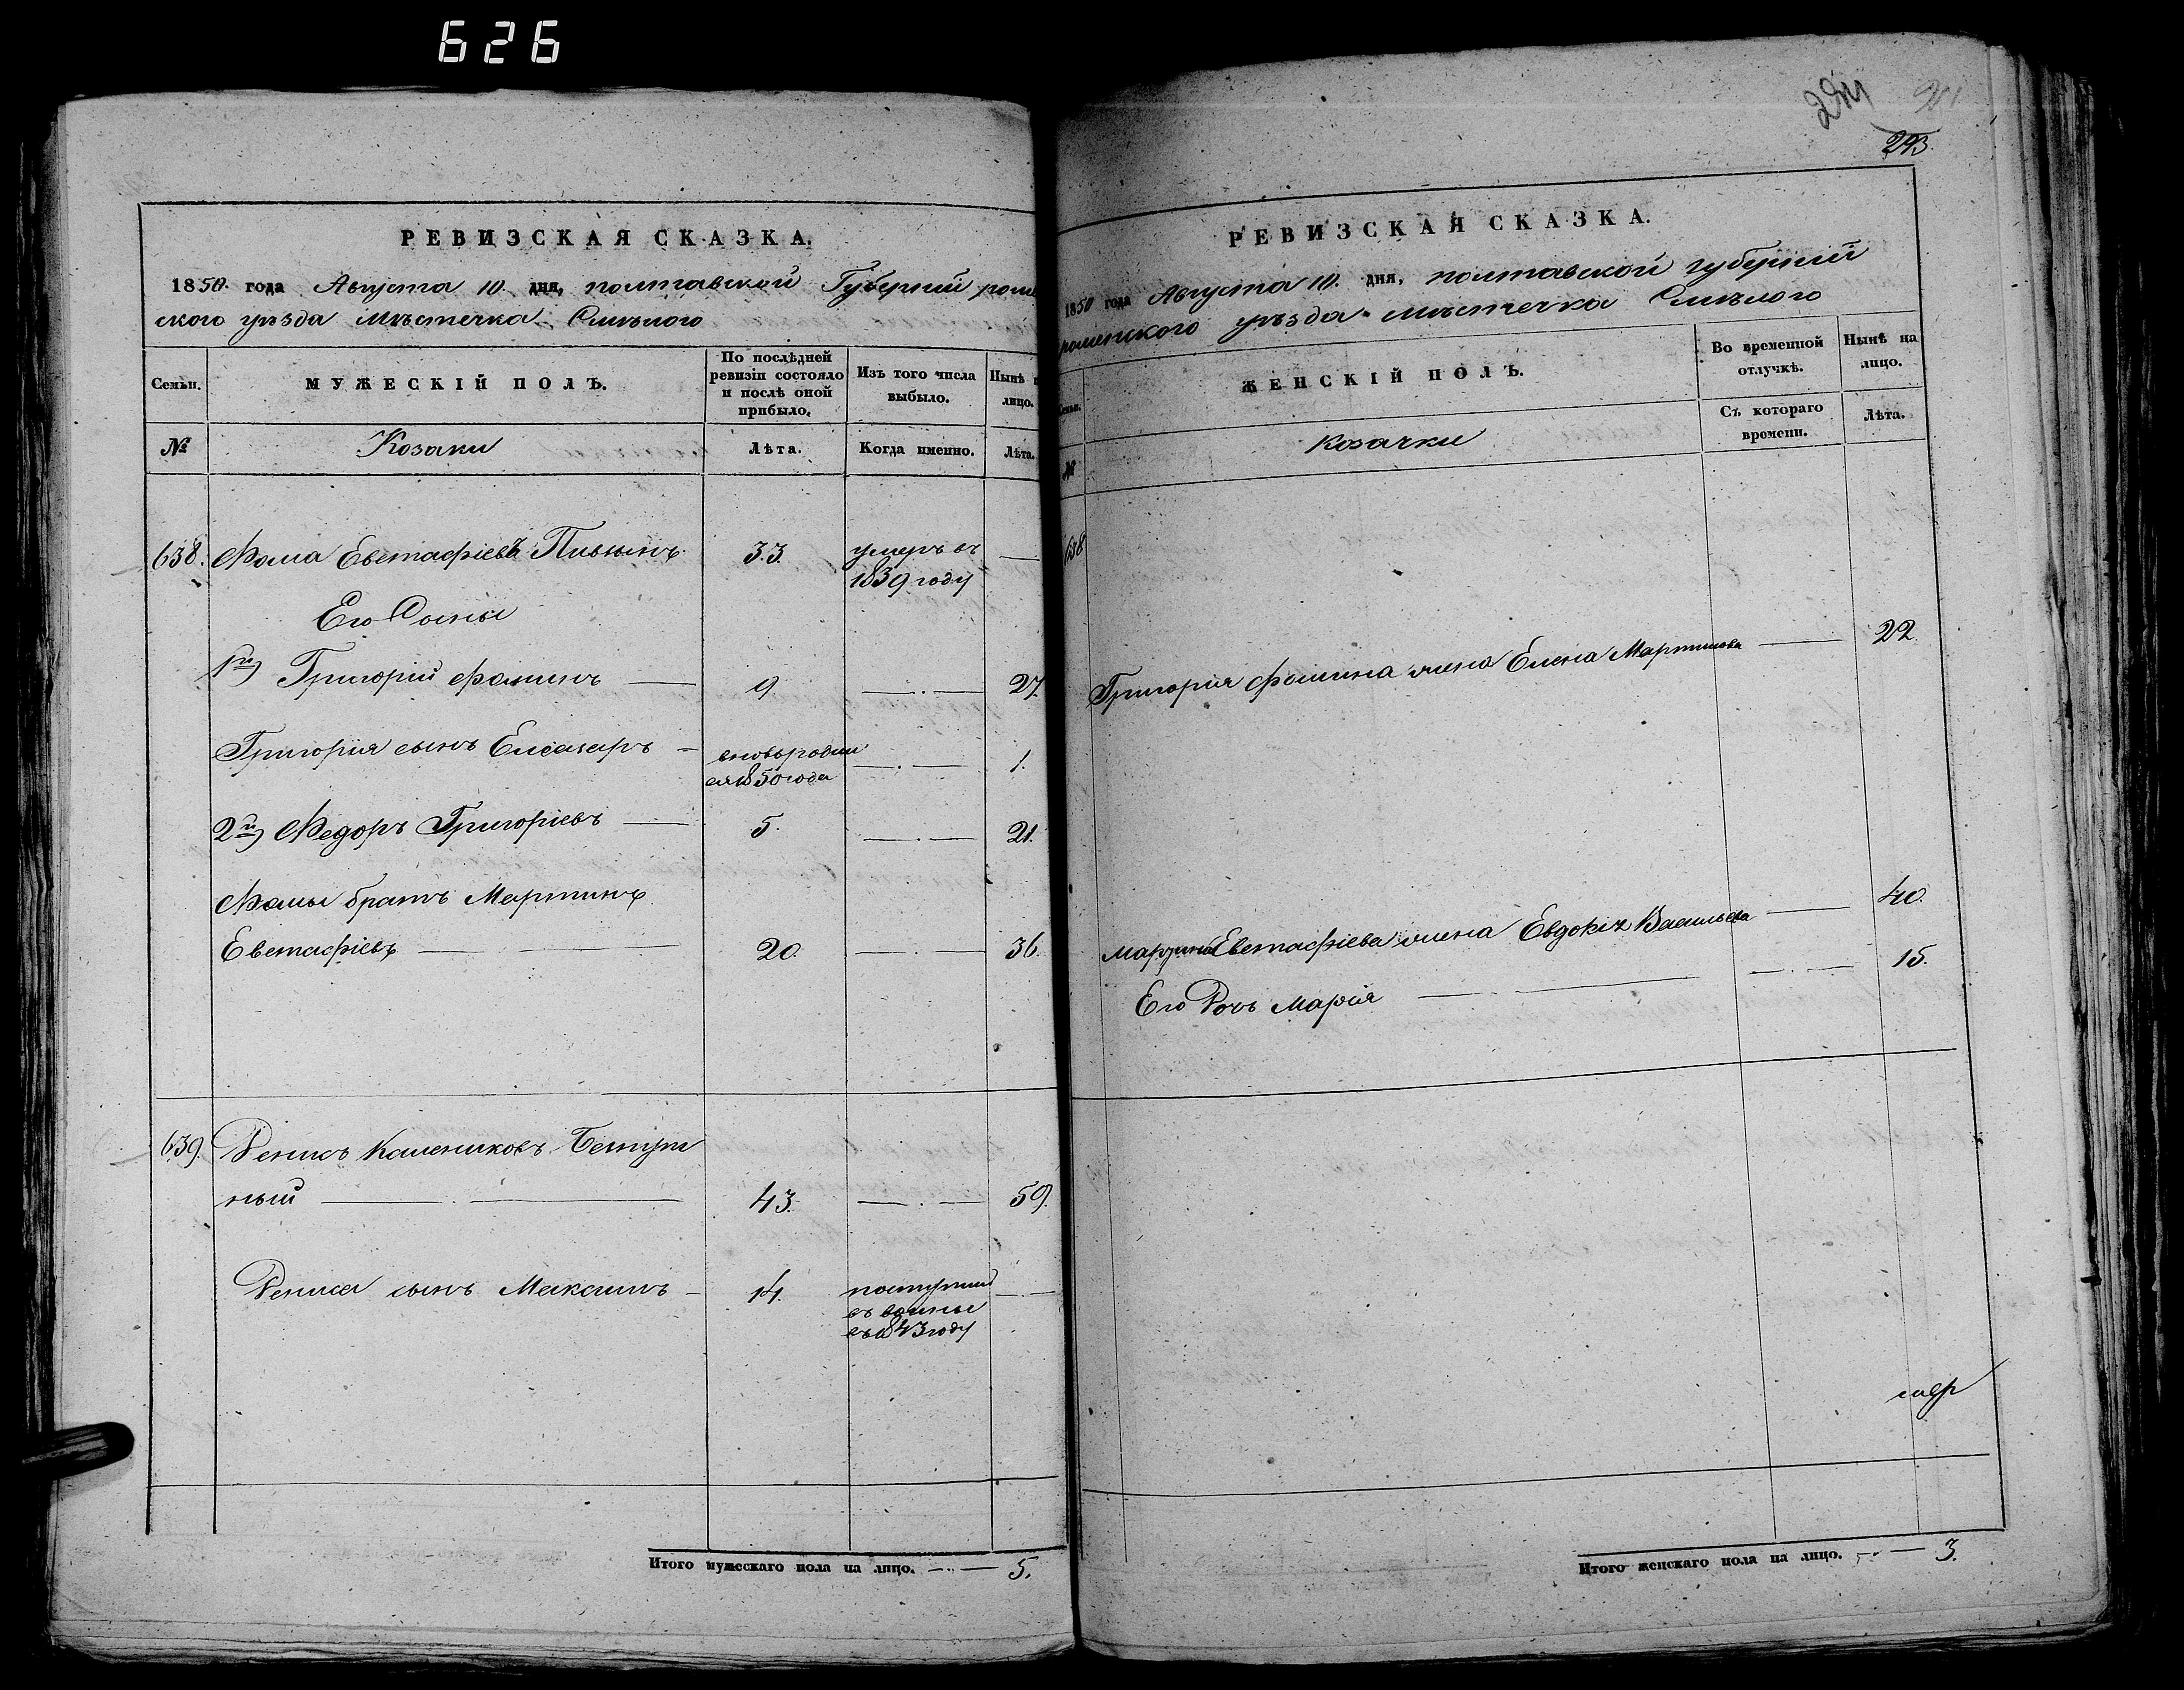 626
РЕВИЗСКАЯ СКАЗКА.
1850. года Августа 10. дня, полтавской Губерній роме
ского уѣзда мѣстечка Смѣлого
Семьи.
МУЖЕСКІЙ ПОЛЪ.
По послѣдней ревизіи состояло и послѣ оной прибыло.
Изъ того числа выбыло.
Нынѣ на лицо.
№
Козаки
Лѣта.
Когда именно.
Лѣта.
638. Фома Евстафіевъ 33. умеръ въ —
1839 году
Его Сыны
1й) Григорій Фоминъ — 9 — . — 27.
Григорія сынъ Елеазаръ — вновьродил — . — 1.
ся 1850 года
2й) Федоръ Григоріевъ — 5. — . — 21.
Фомы братъ Мартинъ
Евстафіевъ — 20. — . — 36.
639. Денисъ Калениковъ
ный — . — 43. — . — 59.
Дениса сынъ Максимъ — 14. поступил — —
въ
въ 1843 году
Итого мужескаго пола на лицо. — 5.
294
293.
РЕВИЗСКАЯ СКАЗКА.
1850 года Августа 10. дня, полтавской губерній
роменского уѣзда мѣстечка Смѣлого
Семьи.
ЖЕНСКІЙ ПОЛЪ.
Во временной отлучкѣ.
Нынѣ на лицо.
№
Козачки
Съ котораго времени.
Лѣта.
638
Григорія Фомина жена Елена Мартинова — 22
Мартина Евстафіева жена Евдокія Васильева — 40.
Его Дочь Марія — — . — 15.
Итого женскаго пола на лицо. — 3.